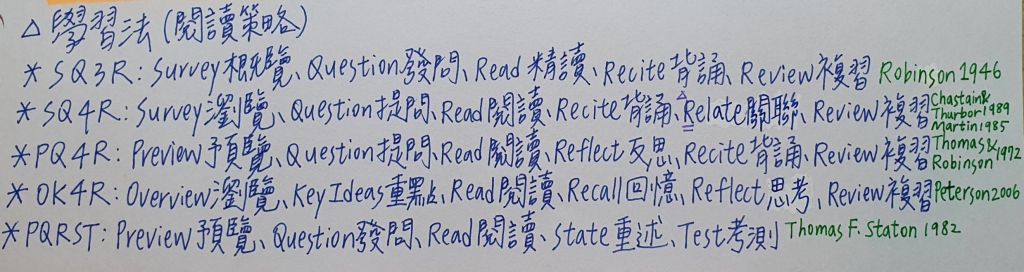 △ 學習法(閱讀策略)
* SQ3R: Survey概覽、Question發問、Read精讀、Recite背誦、Review複習 Robinson 1946
* SQ4R: Survey瀏覽、Question提問、Read閱讀、Recite背誦、Relate關聯、Review複習 Chastain & Thurbor1989 Martin1985
* PQ4R: Preview預覽、Question提問、Read閱讀、Reflect反思、Recite背誦、Review複習 Thomas & Robinson 1972
* OK4R: Overview瀏覽、Key Ideas重點、Read閱讀、Recall回憶、Reflect思考、Review複習 Peterson2006
* PQRST: Preview預覽、Question發問、Read閱讀、State重述、Test考測 Thomas F. Staton 1982